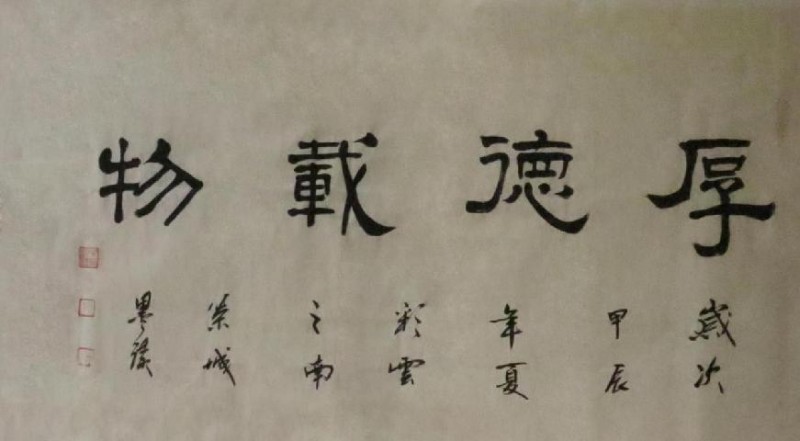 厚德載物
歲次
甲辰
年夏
彩雲
之南
墨